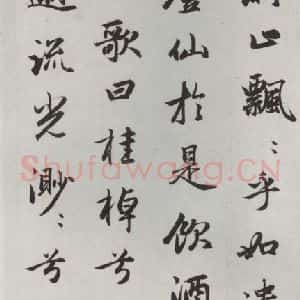 止飄〻乎如
登仙於是飲酒
歌曰桂棹兮
流光渺〻兮
Shufawang.CN